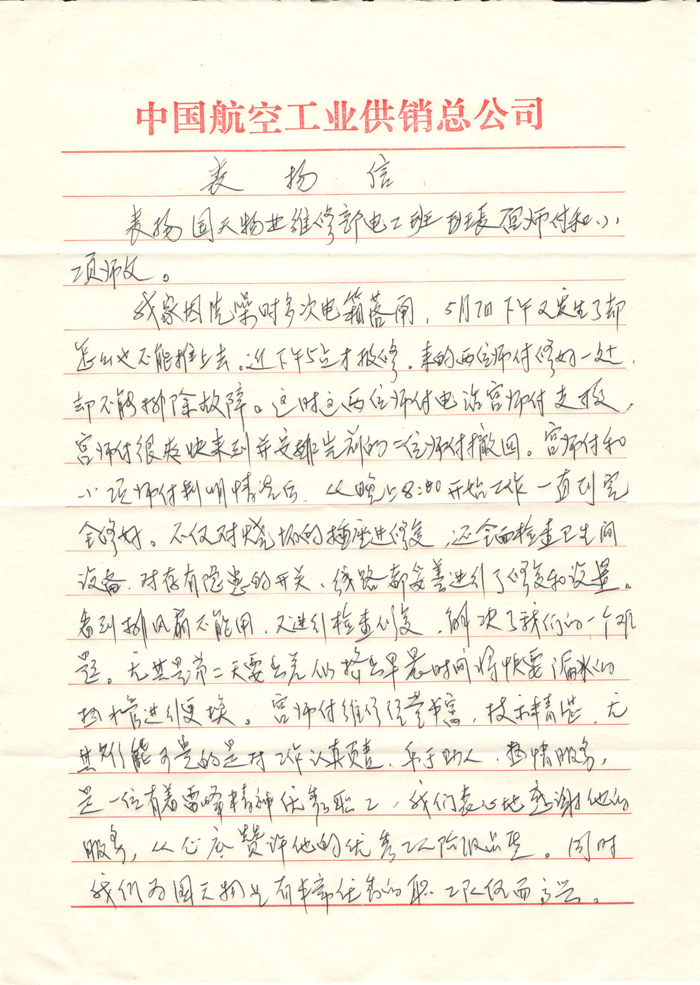 中国航空工业供销总公司
表扬信
表扬国天物业维修部电工班班长宫师付和小
项师付。
我家因洗澡时多次电箱落闸，5月7日下午又发生了却
怎么也不能推上去。近下午5点才报修。来的两位师付修好一处，
却不能排除故障。这时这两位师付电话宫师付支援，
宫师付很爽快来到并安排先前的二位师付撤回。宫师付和
小项师付判明情况后，从晚上8:00开始工作一直到完
全修好。不仅对烧坏的插座进修复，还全面检查卫生间
设备，对存有隐患的开关、线路都妥善进行了修复和设置。
看到排风扇不能用，又进行检查修复，解决了我们的一个难
题。尤其是第二天要出差仍挤出早晨时间将快要漏水的
热水管进行更换。宫师付维修经验丰富，技术精湛，尤
其难能可贵的是对工作认真负责、乐于助人、热情服务，
是一位有着雷锋精神优秀职工，我们衷心地感谢他的
服务，从心底赞许他的优秀工人阶级品质。同时
我们为国天物业有丰富优秀的职工队伍而高兴。